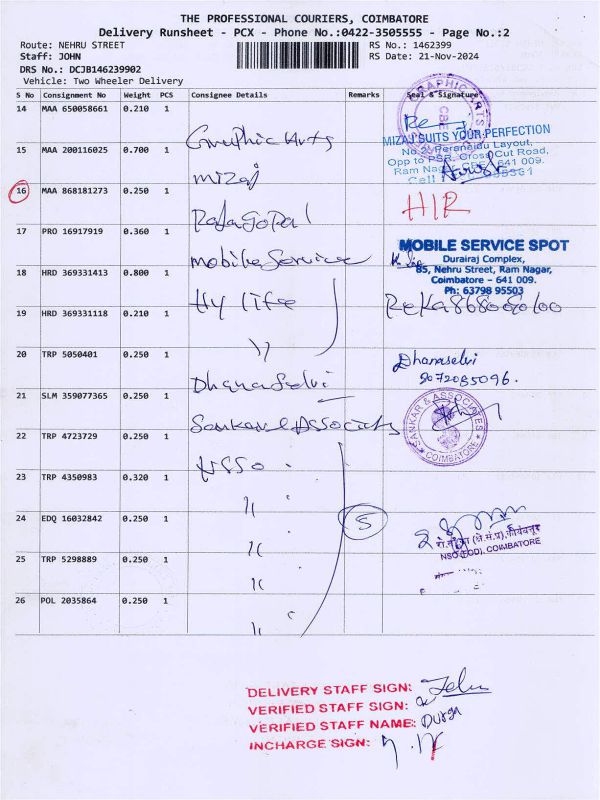 THE PROFESSIONAL COURIERS, COIMBATORE
Delivery Runsheet - PCX - Phone No.:0422-3505555 - Page No.:2
Route: NEHRU STREET
RS No.: 1462399
Staff: JOHN
RS Date: 21-Nov-2024
DRS No.: DCJB146239902
Vehicle: Two Wheeler Delivery
S No Consignment No Weight PCS Consignee Details Remarks Seal & Signature
14 MAA 650058661 0.210 1 Graphic Arts
GRAPHIC ARTS
15 MAA 200116025 0.700 1 Mizaj
MIZAJ SUITS YOUR PERFECTION
No 2, Perumalu Layout,
Opp to PSR, Cross Cut Road,
Ram Nagar, CBE - 641 009.
Cell
16 MAA 868181273 0.250 1 RajaGopal HIR
17 PRO 16917919 0.360 1 Mobile Service
MOBILE SERVICE SPOT
Durairaj Complex,
85, Nehru Street, Ram Nagar,
Coimbatore - 641 009.
Ph: 63798 95503
18 HRD 369331413 0.800 1 Hy life
19 HRD 369331118 0.210 1 "
20 TRP 5050401 0.250 1 DhanaSelvi Dhanaselvi
9072085096.
21 SLM 359077365 0.250 1 Sankar & Associates
SANKAR & ASSOCIATES
COIMBATORE
22 TRP 4723729 0.250 1 NSSO
23 TRP 4350983 0.320 1 "
24 EDQ 16032842 0.250 1 " 5
COIMBATORE
25 TRP 5298889 0.250 1 "
26 POL 2035864 0.250 1 "
DELIVERY STAFF SIGN: John
VERIFIED STAFF SIGN:
VERIFIED STAFF NAME: Durga
INCHARGE SIGN: